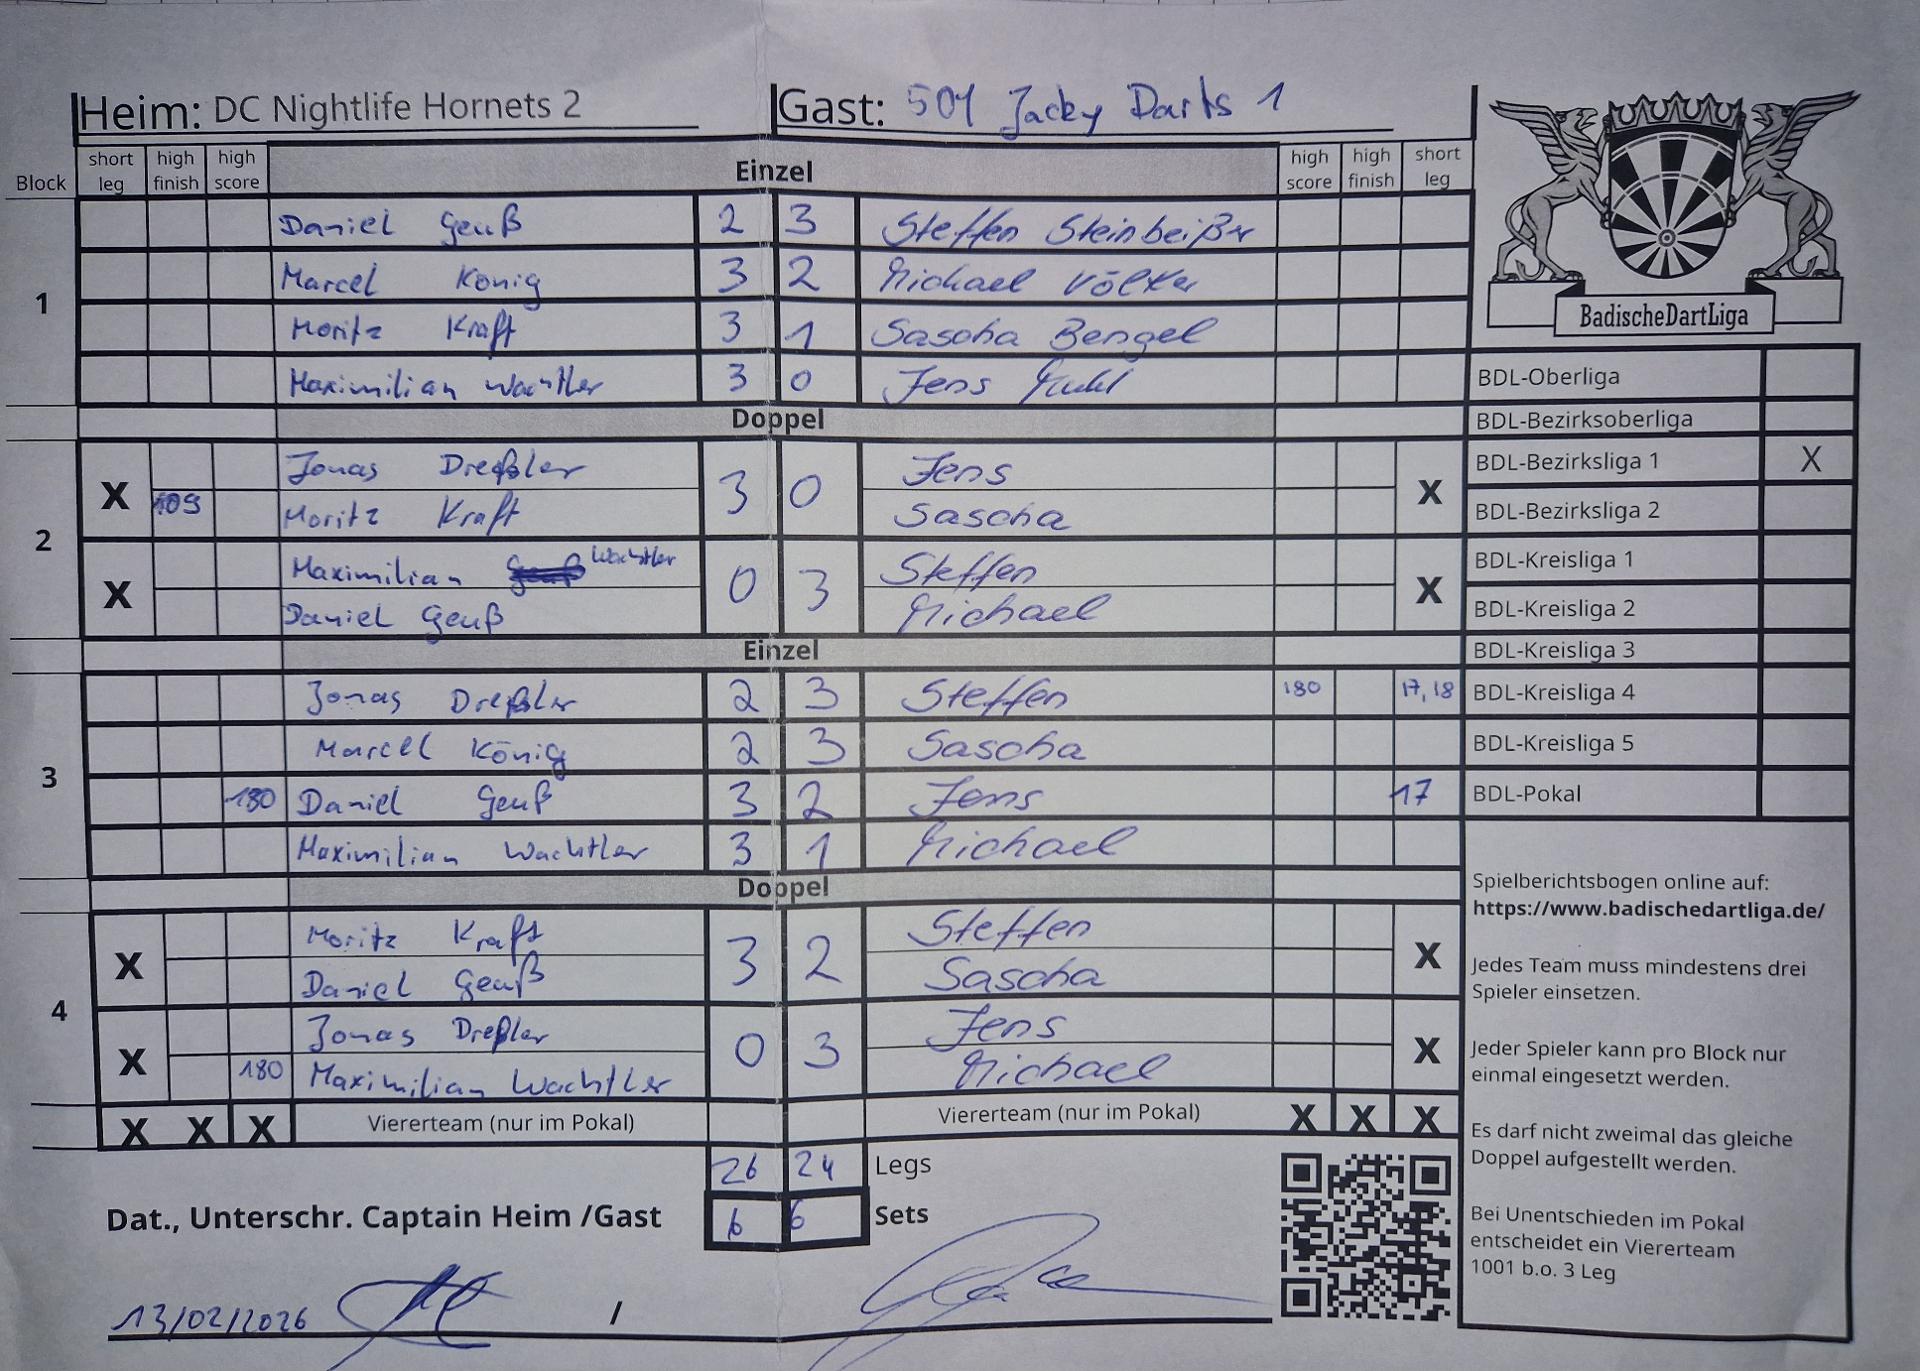 Heim: DC Nightlife Hornets 2 Gast: 501 Jacky Darts 1
Block short leg high finish high score Einzel high score high finish short leg
1
Daniel Geuß 2 3 Steffen Steinbeißer
Marcel König 3 2 Michael Völker
Moritz Kraft 3 1 Sascha Bengel
Maximilian Wachtler 3 0 Jens
Doppel
2
X Jonas Dreßler 3 0 Jens X
109 Moritz Kraft Sascha
X Maximilian Wachtler 0 3 Steffen X
Daniel Geuß Michael
Einzel
3
Jonas Dreßler 2 3 Steffen 180 17, 18
Marcel König 2 3 Sascha
180 Daniel Geuß 3 2 Jens 17
Maximilian Wachtler 3 1 Michael
Doppel
4
X Moritz Kraft 3 2 Steffen X
Daniel Geuß Sascha
X Jonas Dreßler 0 3 Jens X
180 Maximilian Wachtler Michael
X X X Viererteam (nur im Pokal) Viererteam (nur im Pokal) X X X
26 24 Legs
Dat., Unterschr. Captain Heim /Gast 6 6 Sets
13/02/2026 /
BadischeDartLiga
BDL-Oberliga
BDL-Bezirksoberliga
BDL-Bezirksliga 1 X
BDL-Bezirksliga 2
BDL-Kreisliga 1
BDL-Kreisliga 2
BDL-Kreisliga 3
BDL-Kreisliga 4
BDL-Kreisliga 5
BDL-Pokal
Spielberichtsbogen online auf:
https://www.badischedartliga.de/
Jedes Team muss mindestens drei
Spieler einsetzen.
Jeder Spieler kann pro Block nur
einmal eingesetzt werden.
Es darf nicht zweimal das gleiche
Doppel aufgestellt werden.
Bei Unentschieden im Pokal
entscheidet ein Viererteam
1001 b.o. 3 Leg